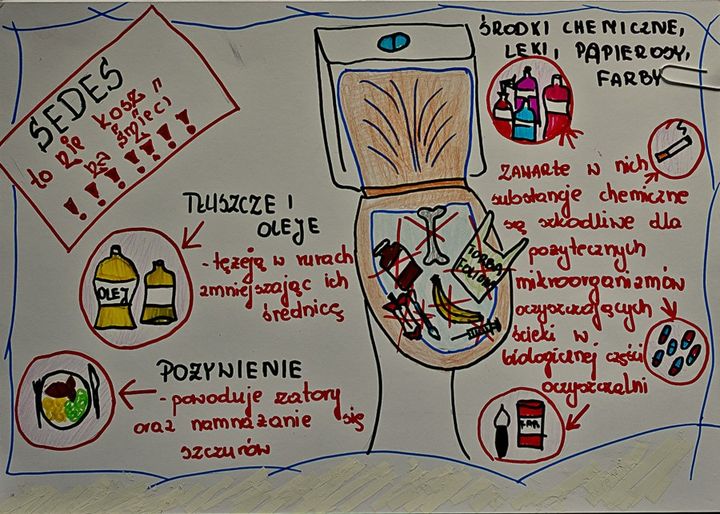 SEDES
to nie kosz
na śmieci
!!!!!!!
ŚRODKI CHEMICZNE,
LEKI, PAPIEROSY,
FARBY
ZAWARTE w nich
substancje chemiczne
są szkodliwe dla
pożytecznych
mikroorganizmów
oczyszczających
ścieki w
biologicznej części
oczyszczalni
TŁUSZCZE I
OLEJE
- tężeją w rurach
zmniejszając ich
średnicę
OLEJ
POŻYWIENIE
- powoduje zatory
oraz namnażanie się
szczurów
TORBA
FOLIOWA